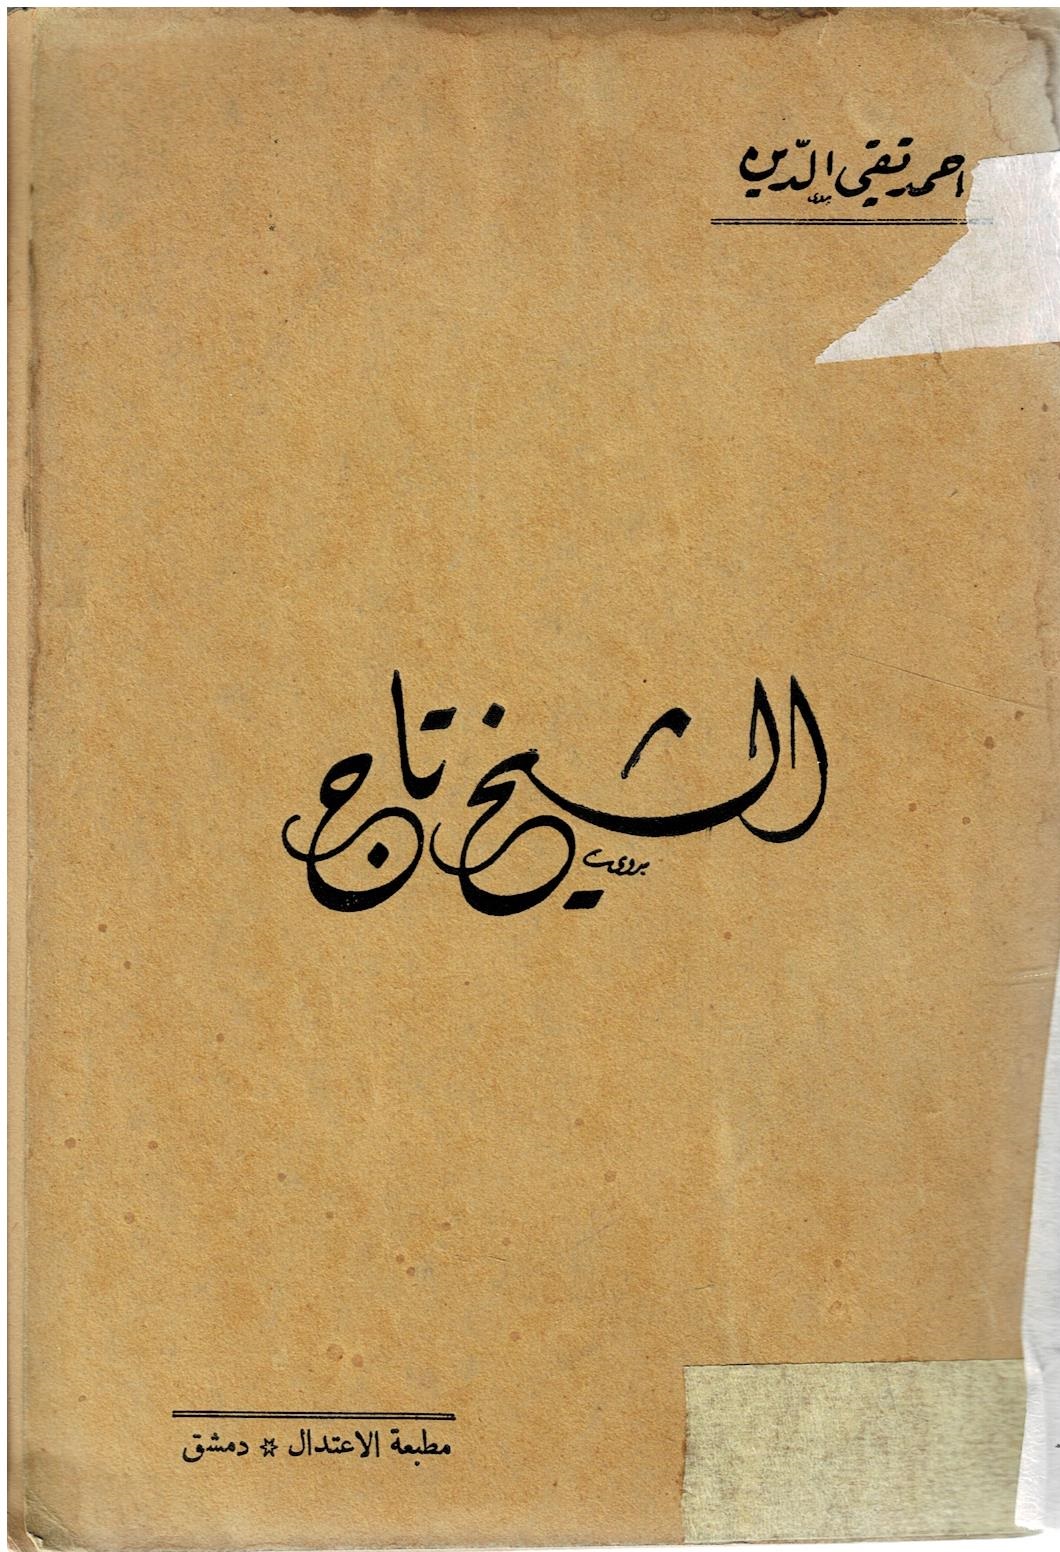 احمد تقي الدّين
الشيخ تاج
بدوي
مطبعة الاعتدال ۞ دمشق